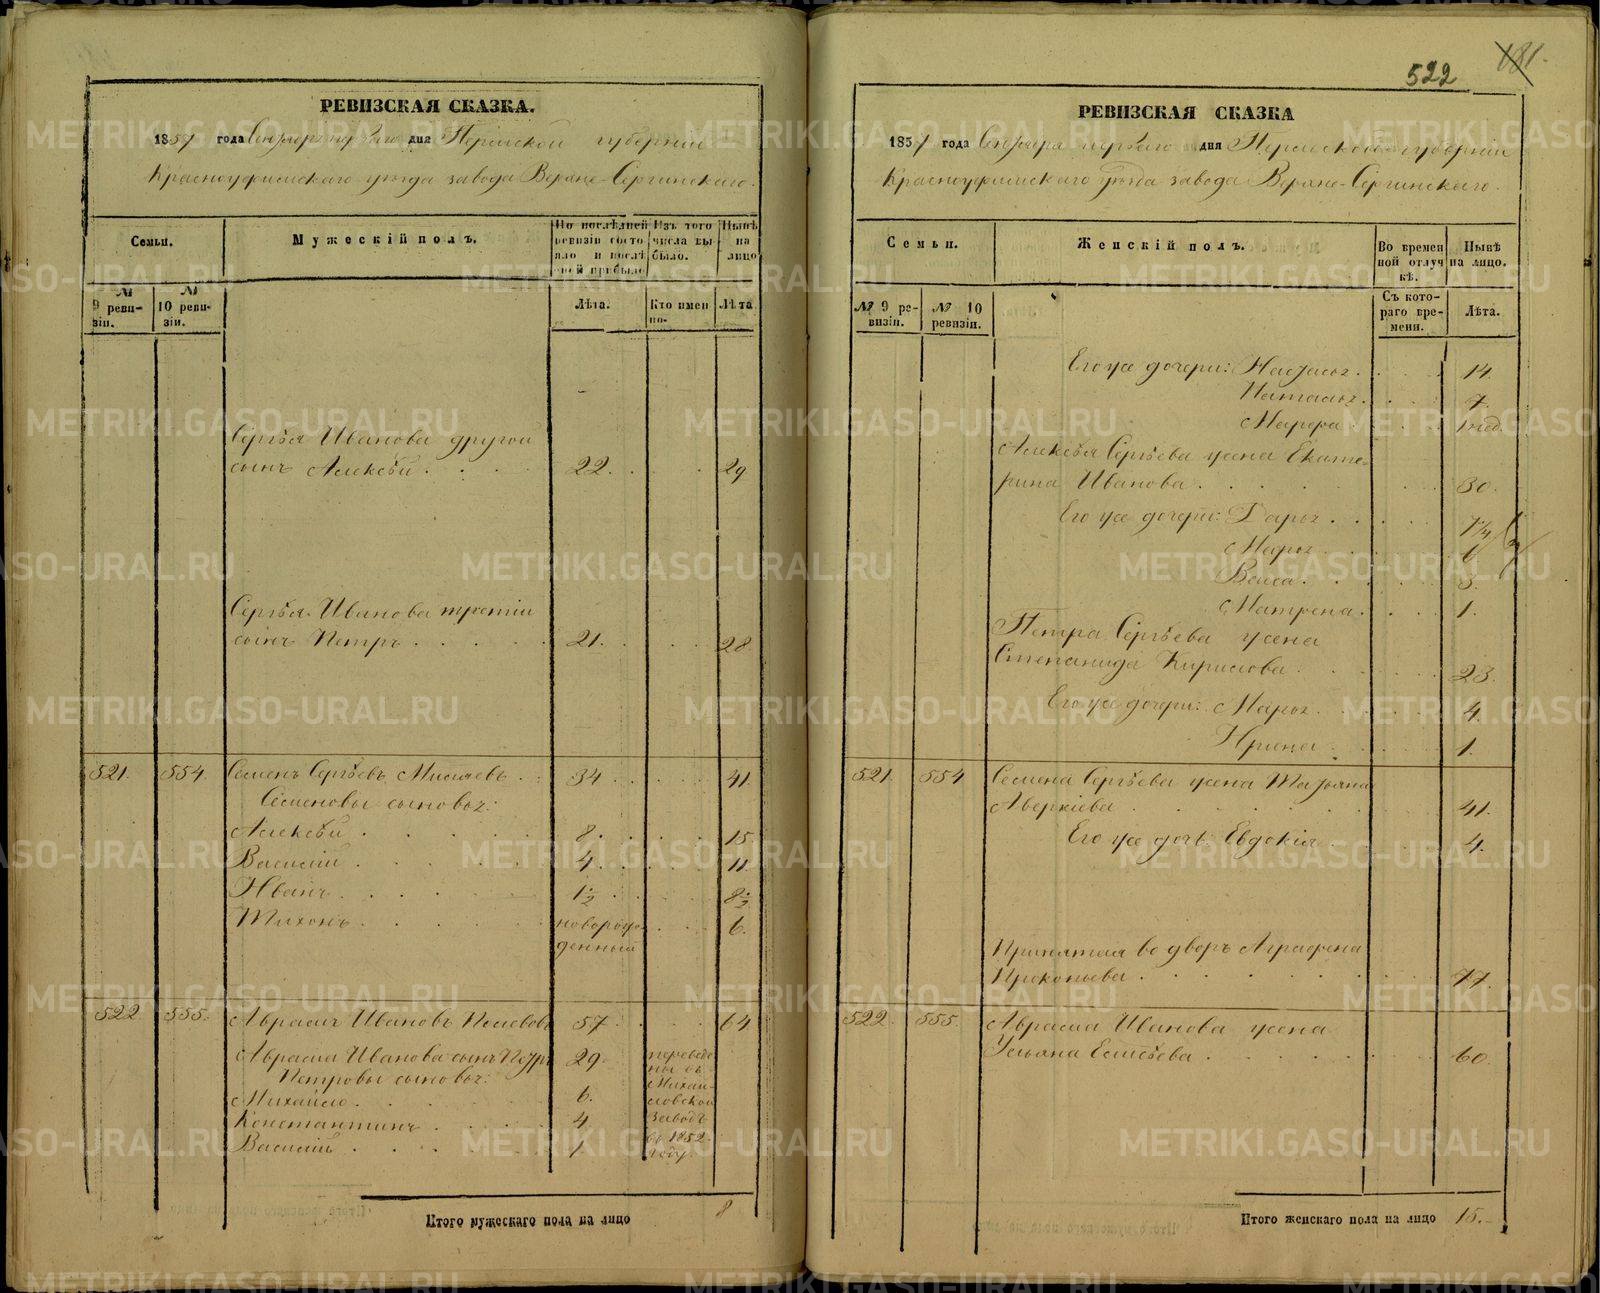 РЕВИЗСКАЯ СКАЗКА.
1857 года Октября первого дня Пермской губерніи
Красноуфимскаго уѣзда завода Верхне-Сергинскаго.
Семьи.
Мужескій полъ.
По послѣдней ревизіи состояло и послѣ оной прибыло
Изъ того числа выбыло.
Нынѣ на лицо
№ 9 ревизіи.
№ 10 ревизіи.
Лѣта.
Кто именно.
Лѣта
Сергѣя Иванова другой
сынъ Алексѣй . . . 22. . . . 29
Сергѣя Иванова третій
сынъ Петръ . . . . . 21. . . . 28
521. 554. Семенъ Сергѣевъ . . 34 . . . . 41.
Семеновы сыновья:
Алексѣй . . . . . 8. . . . 15.
Василій . . . . . 4. . . . 11.
Иванъ . . . . . 1½ . . . 8½
Тихонъ . . . . . новорожденный . . . 6.
522 555. Абрамъ Ивановъ 57 . . . . 64
Абрама Иванова сынъ Петръ 29.
Петровы сыновья:
Михайло . . . . 6.
Константинъ . . . . 4
Василій . . . . . 1
переведены въ Михайловской заводъ въ 1852 году.
Итого мужескаго пола на лицо 8
522
181.
РЕВИЗСКАЯ СКАЗКА
1857 года Октября первого дня Пермской губерніи
Красноуфимскаго уѣзда завода Верхне-Сергинскаго.
Семьи.
Женскій полъ.
Во временной отлучкѣ.
Нынѣ на лицо.
№ 9 ревизіи.
№ 10 ревизіи.
Съ котораго времени.
Лѣта.
Его же дочери: Настасья . . . . 14.
Наталья . . . . 7.
Марфа . . . . 1 нед.
Алексѣя Сергѣева жена Екате-
рина Иванова . . . . . . 30.
Его же дочери: Дарья . . . . 7¼
Марья . . . . 6
. . . . 3.
Матрена . . . . 1.
Петра Сергѣева жена
Степанида Кирилова . . . . 23.
Его же дочери: Марья . . . . 4.
Ирина . . . . 1.
521. 554 Семена Сергѣева жена Татьяна
Аверкіева . . . . . . 41.
Его же дочь: Евдокія . . . 4.
Принятая во дворъ Аграфена
Прокопьева . . . . . . 77.
522. 555 Абрама Иванова жена
Ульяна Елисѣева . . . . . . 60.
Итого женскаго пола на лицо 15.
METRIKI.GASO-URAL.RU